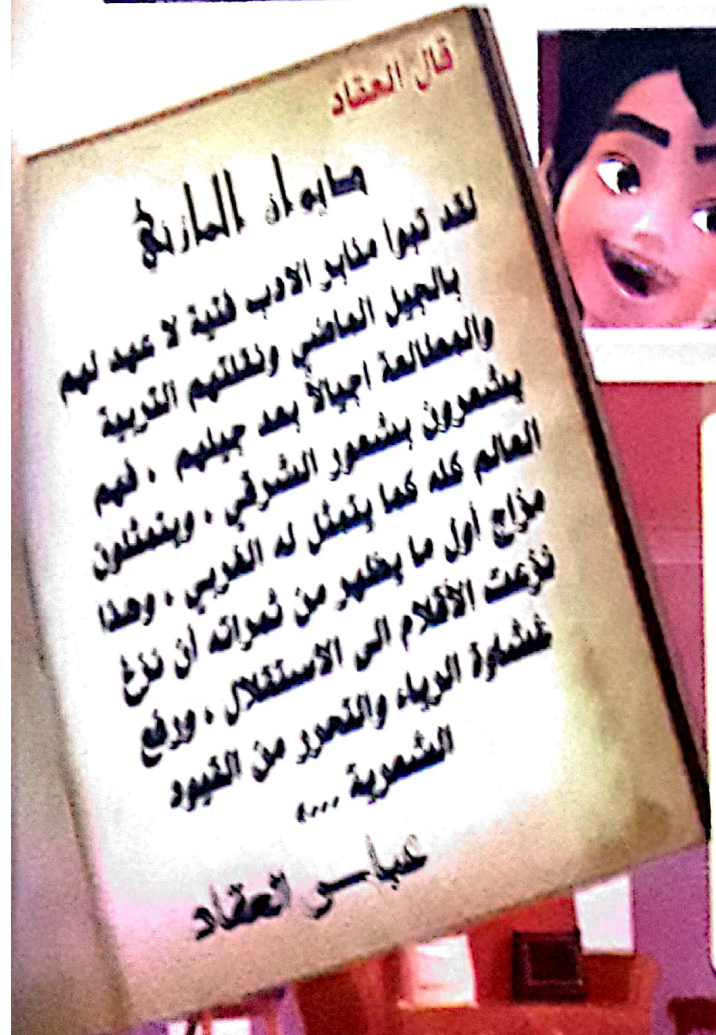 قال العقاد
ديوان المازني
لقد تبوا منابر الادب فتية لا عهد لهم
بالجيل الماضي ونقلتهم التربية
والمطالعة اجيالاً بعد جيلهم ، فهم
يشعرون بشعور الشرقي ، ويتمثلون
العالم كله كما يتمثل له الغربي ، وهذا
مزاج أول ما يظهر من ثمراته أن نزع
نزعت الأقلام الى الاستقلال ، ورفع
غشاوة الرياء والتحرر من القيود
الشعرية ...،
عباس العقاد